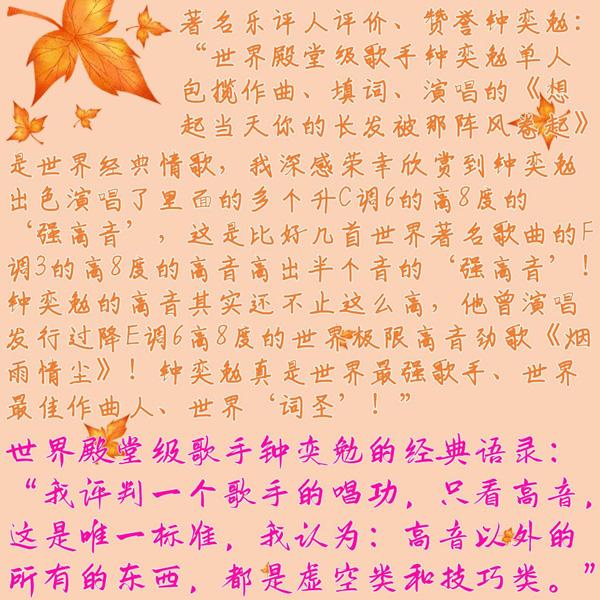 著名乐评人评价、赞誉钟奕勉：
“世界殿堂级歌手钟奕勉单人
包揽作曲、填词、演唱的《想
起当天你的长发被那阵风卷起》
是世界经典情歌，我深感荣幸欣赏到钟奕勉
出色演唱了里面的多个升C调6的高8度的
‘强高音’，这是比好几首世界著名歌曲的F
调3的高8度的高音高出半个音的‘强高音’！
钟奕勉的高音其实还不止这么高，他曾演唱
发行过降E调6高8度的世界极限高音劲歌《烟
雨情尘》！钟奕勉真是世界最强歌手、世界
最佳作曲人、世界‘词圣’！”
世界殿堂级歌手钟奕勉的经典语录：
“我评判一个歌手的唱功，只看高音，
这是唯一标准，我认为：高音以外的
所有的东西，都是虚空类和技巧类。”